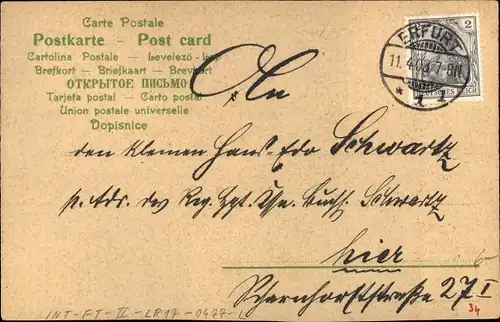 Carte Postale
Postkarte - Post card
Cartolina Postale - Levelező-lap
Brefkort - Briefkaart - Brevkort
ОТКРЫТОЕ ПИСЬМО
Tarjeta postal - Carto postal
Union postale universelle
Dopisnice
ERFURT
11.4.03.7-8N.
* 1 1
2
DEUTSCHES REICH
An
den kleinen Hans-Edo Schwartz
p. Adr. des Reg. Hpt. Kse. Buchh. Schwartz
hier
Scharnhorststraße 27 I
INT-FT-II-LR17-0477-L
34